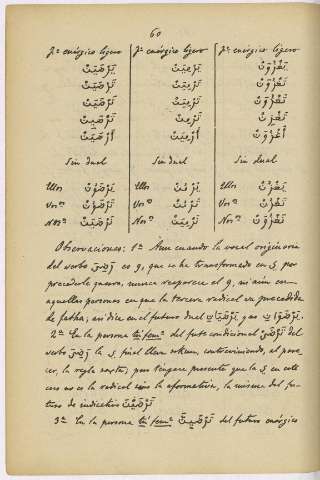 60
fº enérgico ligero fº enérgico ligero fº enérgico ligero
يَرْضَيَنْ يَرْمِيَنْ يَغْزُوَنْ
تَرْضَيَنْ تَرْمِيَنْ تَغْزُوَنْ
تَرْضَيَنْ تَرْمِيَنْ تَغْزُوَنْ
تَرْضَيِنْ تَرْمِنْ تَغْزِنْ
أَرْضَيَنْ أَرْمِيَنْ أَغْزُوَنْ
Sin dual Sin dual Sin dual
Ellos يَرْضَوُنْ Ellos يَرْمُنْ Ellos يَغْزُنْ
Vosº تَرْضَوُنْ Vosº تَرْمُنْ Vosº تَغْزُنْ
Nosº نَرْضَيَنْ Nosº نَرْمِيَنْ Nosº نَغْزُوَنْ
Observaciones: 1ª Aun cuando la vocal originaria
del verbo رَضِيَ es و, que se ha transformado en ي por
precederle quesra, nunca reaparece el و, ni aún en
aquellas personas en que la tercera radical va precedida
de fatha; así dice en el futuro dual يَرْضَيَانِ y no يَرْضَوَانِ.
2ª En la persona tú fem.ª del futº condicional تَرْضَيْ del
verbo رَضِيَ la ي final lleva sokun, contraviniendo, al pare-
cer, la regla sexta; pero téngase presente que la ي en este
caso no es la radical sino la aformativa, la misma del fu-
turo de indicativo تَرْضَيْنَ
3ª En la persona tú fem.ª تَرْضَيِنَّ del futuro enérgico